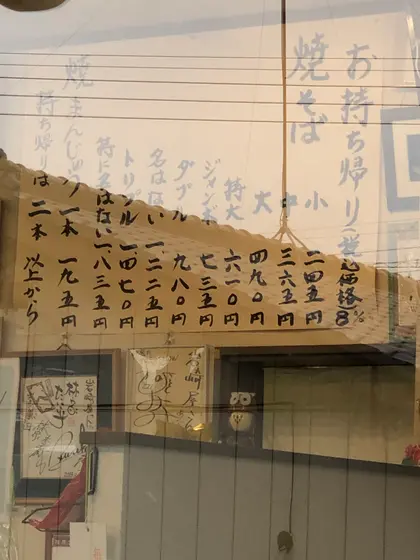 お持ち帰り(税込価格8%)
焼そば
小 二四五円
中 三六五円
大 四九〇円
特大 六一〇円
ジャンボ 七三五円
ダブル 九八〇円
名はない 一、二二五円
トリプル 一、四七〇円
特に名はない 一、八三五円
焼まんじゅう 一本 一九五円
持ち帰りは 二本 以上から